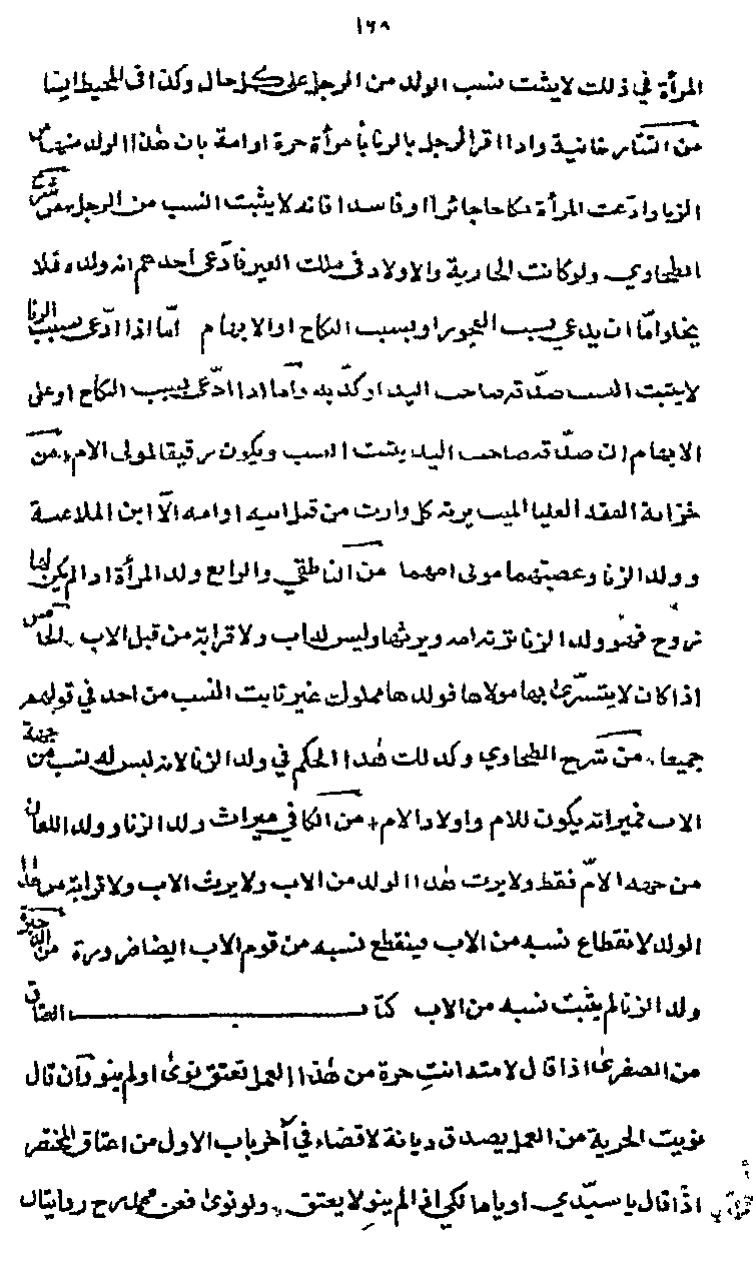 ١٦٨
المرأة في ذلك لا يثبت نسب الولد من الرجل على كل حال وكذا في المحيط ايضا
من التتار خانية واذا اقر الرجل بالزنا بامرأة حرة او امة بان هٰذا الولد منها من
الزنا وادّعت المرأة نكاحا جائزا او فاسدا فانه لا يثبت النسب من الرجل من شرح
الطحاوي ولو كانت الجارية والاولاد في ملك الغير فادّعى احدهم انه ولده فلا
يخلو امّا ان يدعي بسبب الفجور او بسبب النكاح او الابهام امّا اذا ادّعى بسبب الزنا
لا يثبت النسب صدّقه صاحب اليد او كذّبه وامّا اذا ادّعى بسبب النكاح او على
الابهام ان صدّقه صاحب اليد يثبت النسب ويكون رقيقا لمولى الام من
خزانة الفقه العليا الميت يرثه كل وارث من قبل ابيه او امه الّا ابن الملاعنة
وولد الزنا وعصبتهما مولى امهما من الناطقي والرابع ولد المرأة اذا لم يكن لها
زوج فهو ولد الزنا ترثه امه ويرثها وليس له اب ولا قرابة من قبل الاب الخامس
اذا كان لا يتسرّىٰ بها مولاها فولدها مملوك غير ثابت النسب من احد في قولهم
جميعا من شرح الطحاوي وكذلك هٰذا الحكم في ولد الزنا لانه ليس له نسب من جهة
الاب غير انه يكون للام واولاد الام من الكافي ميراث ولد الزنا وولد اللعان
من جهة الامّ فقط ولا يرث هٰذا الولد من الاب ولا يرث الاب ولا قرابته من هٰذا
الولد لانقطاع نسبه من الاب فينقطع نسبه من قوم الاب ايضا ضرورة من الذخيرة
ولد الزنا لم يثبت نسبه من الاب كتاب العتاق
من الصغرىٰ اذا قال لامته انتِ حرة من هٰذا العمل تعتق نوىٰ او لم ينو وان قال
نويت الحرية من العمل يصدق ديانة لا قضاء في آخر باب الاول من اعتاق المختصر
اذا قال يا سيّدي او ياها لكي اذا لم ينوِ لا يعتق ولو نوىٰ فعن محمد رح روايتان